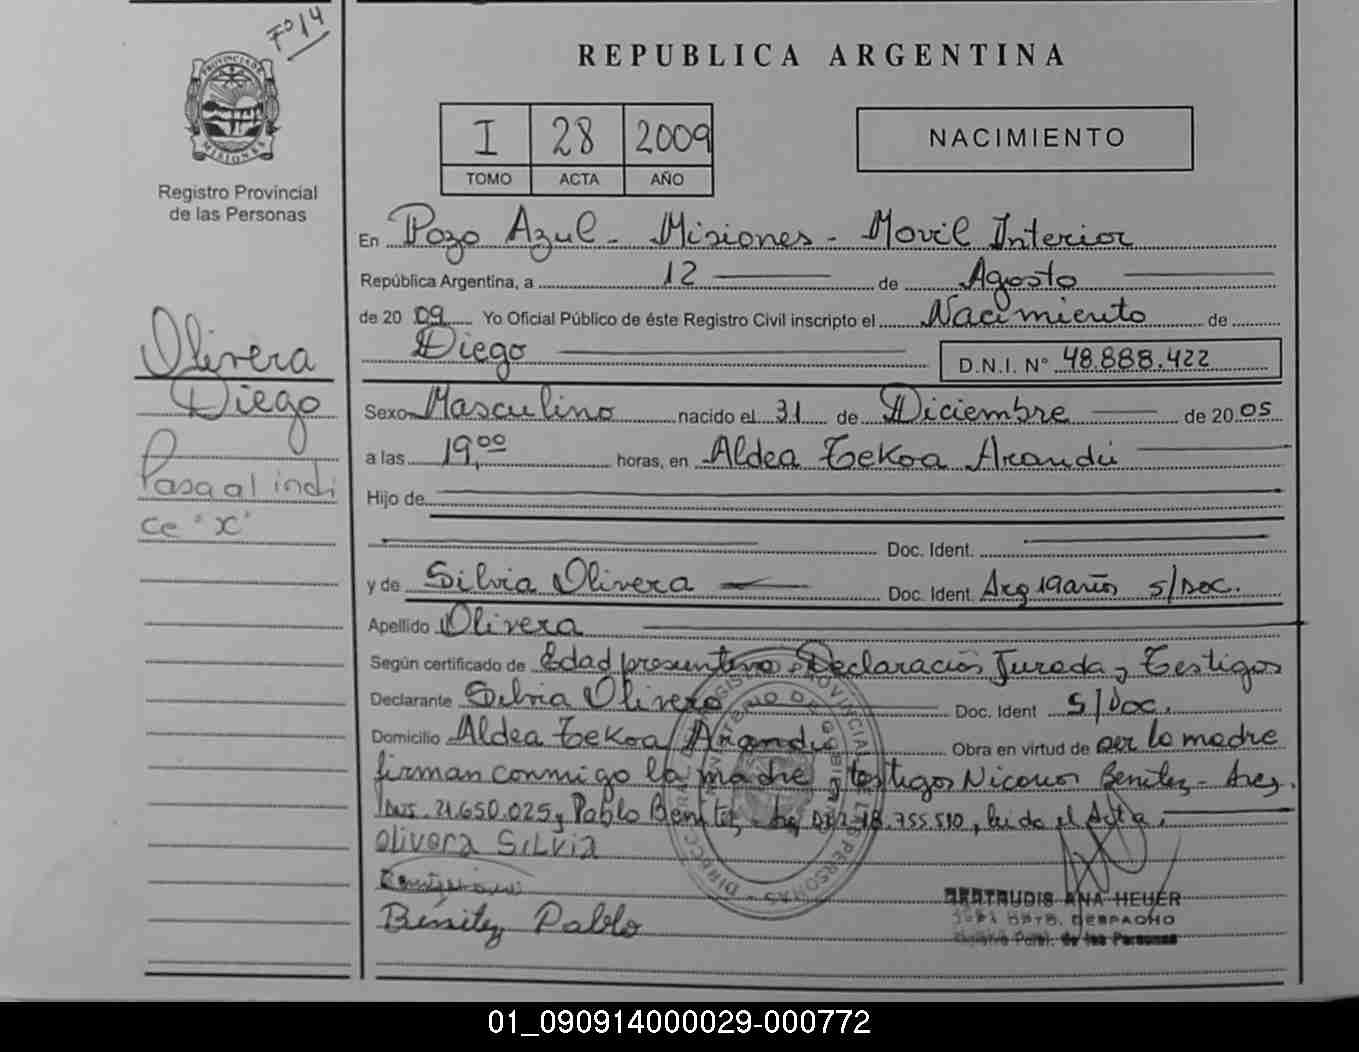 Fº 14
PROVINCIA DE
MISIONES
Registro Provincial
de las Personas
REPUBLICA ARGENTINA
I 28 2009
TOMO ACTA AÑO
NACIMIENTO
En Pozo Azul - Misiones - Movil Interior
República Argentina, a 12 de Agosto
de 20 09 Yo Oficial Público de éste Registro Civil inscripto el Nacimiento de
Diego D.N.I. Nº 48.888.422
Olivera
Diego
Pasa al indi
ce "X"
Sexo Masculino nacido el 31 de Diciembre de 20 05
a las 19,00 horas, en Aldea Tekoa Arandú
Hijo de
Doc. Ident.
y de Silvia Olivera Doc. Ident. Arg 19 años s/Doc.
Apellido Olivera
Según certificado de Edad presuntiva, Declaración Jurada y Testigos
Declarante Silvia Olivera Doc. Ident S/Doc.
Domicilio Aldea Tekoa Arandú Obra en virtud de ser la madre
firman conmigo la madre y testigos Nicanor Benitez - Arg.
DNI. 21.650.025 y Pablo Benitez, DNI 18.755.510, leida el Acta,
Olivera Silvia
Benitez Pablo
GERTRUDIS ANA HEUER
JEFA DPTO. DESPACHO
de las Personas
01_090914000029-000772